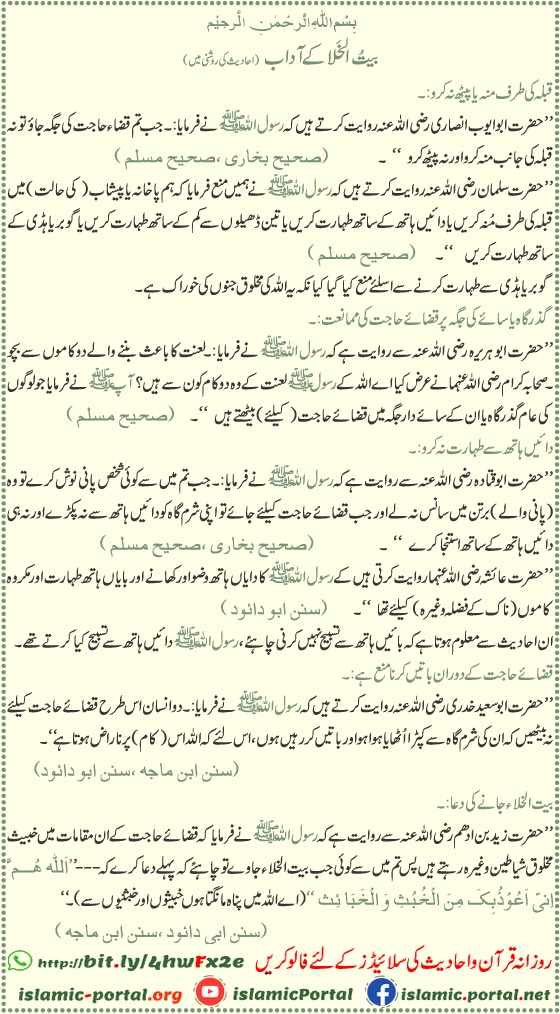 بِسْمِ اللهِ الرَّحْمٰنِ الرَّحِيْمِ
بیتُ الخَلا کے آداب (احادیث کی روشنی میں)
قبلہ کی طرف منہ یا پیٹھ نہ کرو:۔
’’حضرت ابوایوب انصاری رضی اللہ عنہ روایت کرتے ہیں کہ رسول اللہ ﷺ نے فرمایا:۔ جب تم قضاء حاجت کی جگہ جاؤ تو نہ
قبلہ کی جانب منہ کرو اور نہ پیٹھ کرو ‘‘ ۔ (صحیح بخاری ،صحیح مسلم )
’’حضرت سلمان رضی اللہ عنہ روایت کرتے ہیں کہ رسول اللہ ﷺ نے ہمیں منع فرمایا کہ ہم پاخانہ یا پیشاب ( کی حالت ) میں
قبلہ کی طرف مُنہ کریں یا دائیں ہاتھ کے ساتھ طہارت کریں یا تین ڈھیلوں سے کم کے ساتھ طہارت کریں یا گوبر یا ہڈی کے
ساتھ طہارت کریں ‘‘۔ (صحیح مسلم )
گوبر یا ہڈی سے طہارت کرنے سے اسلئے منع کیا گیا کیانکہ یہ اللہ کی مخلوق جنوں کی خوراک ہے۔
گذرگاہ یا سائے کی جگہ پر قضائے حاجت کی ممانعت:۔
’’حضرت ابو ہریرہ رضی اللہ عنہ سے روایت ہے کہ رسول اللہ ﷺ نے فرمایا:۔ لعنت کا باعث بننے والے دو کاموں سے بچو
صحابہ کرام رضی اللہ عنہما نے عرض کیا اے اللہ کے رسول ﷺ لعنت کے وہ دو کام کون سے ہیں؟ آپ ﷺ نے فرمایا جو لوگوں
کی عام گذرگاہ یا ان کے سائے دار جگہ میں قضائے حاجت ( کیلئے ) بیٹھتے ہیں ‘‘۔ (صحیح مسلم )
دائیں ہاتھ سے طہارت نہ کرو:۔
’’حضرت ابو قتادہ رضی اللہ عنہ سے روایت ہے کہ رسول اللہ ﷺ نے فرمایا:۔ جب تم میں سے کوئی شخص پانی نوش کرے تو وہ
(پانی والے ) برتن میں سانس نہ لے اور جب قضائے حاجت کیلئے جائے تو اپنی شرم گاہ کو دائیں ہاتھ سے نہ پکڑے اور نہ ہی
دائیں ہاتھ کے ساتھ استنجا کرے ‘‘ ۔ (صحیح بخاری ،صحیح مسلم )
’’حضرت عائشہ رضی اللہ عنہا روایت کرتی ہیں کے رسول اللہ ﷺ کا دایاں ہاتھ وضو اور کھانے اور بایاں ہاتھ طہارت اور مکروہ
کاموں (ناک کے فضلہ وغیرہ ) کیلئے تھا ‘‘۔ (سنن ابو دائود )
ان احادیث سے معلوم ہوتا ہے کہ بائیں ہاتھ سے تسبیح نہیں کرنی چاہئے، رسول اللہ ﷺ دائیں ہاتھ سے تسبیح کیا کرتے تھے۔
قضائے حاجت کے دوران باتیں کرنا منع ہے:۔
’’حضرت ابو سعید خدری رضی اللہ عنہ روایت کرتے ہیں کہ رسول اللہ ﷺ نے فرمایا:۔ دو انسان اس طرح قضائے حاجت کیلئے
نہ بیٹھیں کہ ان کی شرم گاہ سے کپڑا اُٹھایا ہوا ہو اور باتیں کر رہیں ہوں، اس لئے کہ اللہ اس ( کام ) پر ناراض ہوتا ہے‘‘۔
(سنن ابن ماجہ ،سنن ابو دائود)
بیت الخلاء جانے کی دعا:۔
’’حضرت زید بن ادھم رضی اللہ عنہ سے روایت ہے کہ رسول اللہ ﷺ نے فرمایا کہ قضائے حاجت کے ان مقامات میں خبیث
مخلوق شیاطین وغیرہ رہتے ہیں پس تم میں سے کوئی جب بیت الخلاء جاوے تو چاہئے کہ پہلے دعا کرے کہ ---’’اَللّٰهُمَّ
اِنِّیْ اَعُوْذُبِکَ مِنَ الْخُبُثِ وَ الْخَبَائِثِ ‘‘(اے اللہ میں پناہ مانگتا ہوں خبیثوں اور خبثیوں سے)۔‘‘
(سنن ابی دائود ،سنن ابن ماجہ )
روزانہ قرآن و احادیث کی سلائیڈز کے لئے فالو کریں http://bit.ly/4hwFx2e
islamic-portal.org islamicPortal islamic-portal.net